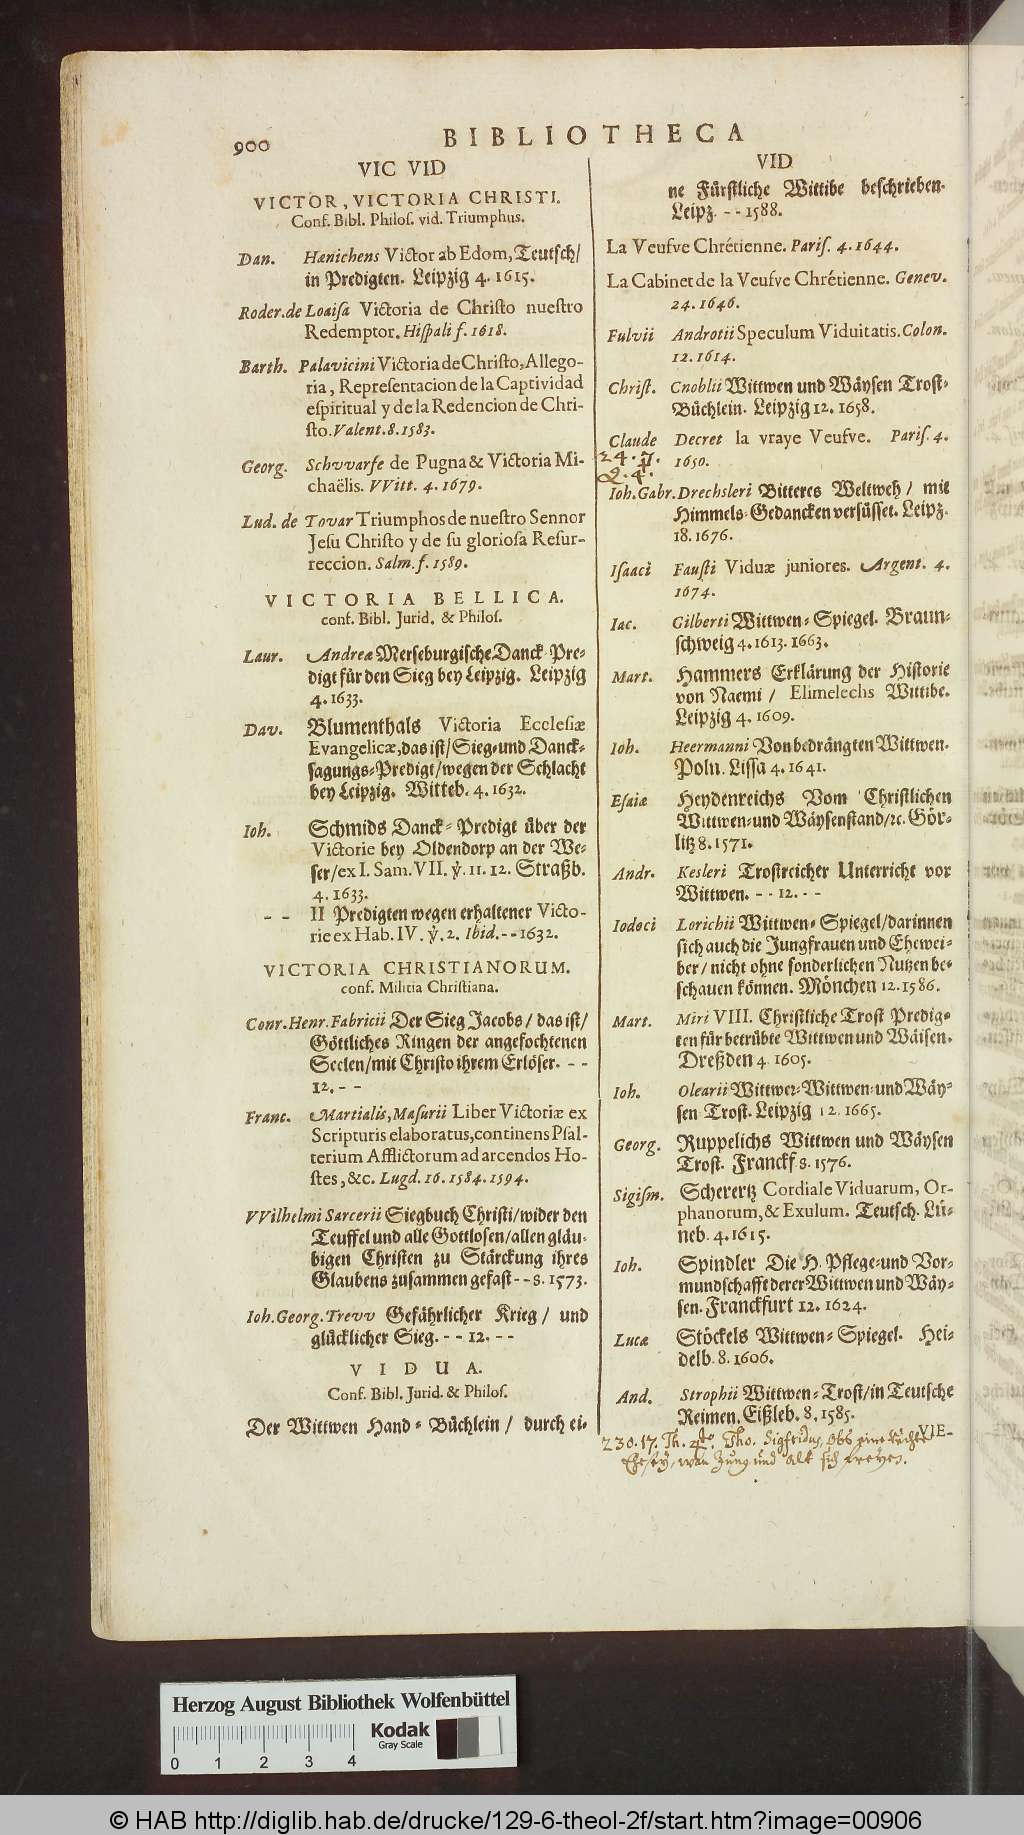 900
BIBLIOTHECA
VIC VID
VICTOR, VICTORIA CHRISTI.
Conf. Bibl. Philoſ. vid. Triumphus.
Dan. Hænichens Victor ab Edom, Teutſch/
in Predigten. Leipzig 4. 1615.
Roder. de Loaiſa Victoria de Chriſto nueſtro
Redemptor. Hiſpali f. 1618.
Barth. Palavicini Victoria de Chriſto, Allego-
ria, Repreſentacion de la Captividad
eſpiritual y de la Redencion de Chri-
ſto. Valent. 8. 1583.
Georg. Schvvarſe de Pugna & Victoria Mi-
chaëlis. VVitt. 4. 1679.
Lud. de Tovar Triumphos de nueſtro Sennor
Jeſu Chriſto y de ſu glorioſa Reſur-
reccion. Salm. f. 1589.
VICTORIA BELLICA.
conf. Bibl. Jurid. & Philoſ.
Laur. Andreæ Merſeburgiſche Danck-Pre-
digt für den Sieg bey Leipzig. Leipzig
4. 1633.
Dav. Blumenthals Victoria Eccleſiæ
Evangelicæ, das iſt/ Sieg- und Danck-
ſagungs-Predigt/ wegen der Schlacht
bey Leipzig. Witteb. 4. 1632.
Ioh. Schmids Danck-Predigt über der
Victorie bey Oldendorp an der We-
ſer/ ex I. Sam. VII. ℣. 11. 12. Straßb.
4. 1633.
-- II Predigten wegen erhaltener Victo-
rie ex Hab. IV. ℣. 2. Ibid. -- 1632.
VICTORIA CHRISTIANORUM.
conf. Militia Chriſtiana.
Conr. Henr. Fabricii Der Sieg Jacobs/ das iſt/
Göttliches Ringen der angefochtenen
Seelen/ mit Chriſto ihrem Erlöſer. --
12. --
Franc. Martialis, Maſurii Liber Victoriæ ex
Scripturis elaboratus, continens Pſal-
terium Afflictorum ad arcendos Ho-
ſtes, &c. Lugd. 16. 1584. 1594.
VVilhelmi Sarcerii Siegbuch Chriſti/ wider den
Teuffel und alle Gottloſen/ allen gläu-
bigen Chriſten zu Stärckung ihres
Glaubens zuſammen gefaſt -- 8. 1573.
Ioh. Georg. Trevv Gefährlicher Krieg/ und
glücklicher Sieg. -- 12. --
VIDUA.
Conf. Bibl. Jurid. & Philoſ.
Der Wittwen Hand-Büchlein/ durch ei-
VID
ne Fürſtliche Wittibe beſchrieben.
Leipz. -- 1588.
La Veufve Chrétienne. Pariſ. 4. 1644.
La Cabinet de la Veufve Chrétienne. Genev.
24. 1646.
Fulvii Androtii Speculum Viduitatis. Colon.
12. 1614.
Chriſt. Cnoblii Wittwen und Wäyſen Troſt-
Büchlein. Leipzig 12. 1658.
Claude Decret la vraye Veufve. Pariſ. 4.
1650.
Ioh. Gabr. Drechsleri Bitteres Weltweh/ mit
Himmels-Gedancken verſüſſet. Leipz.
18. 1676.
Iſaaci Fauſti Viduæ juniores. Argent. 4.
1674.
Iac. Gilberti Wittwen-Spiegel. Braun-
ſchweig 4. 1613. 1663.
Mart. Hammers Erklärung der Hiſtorie
von Naemi/ Elimelechs Wittibe.
Leipzig 4. 1609.
Ioh. Heermanni Von bedrängten Wittwen.
Poln. Liſſa 4. 1641.
Eſaiæ Heydenreichs Vom Chriſtlichen
Wittwen- und Wäyſenſtand/ ꝛc. Gör-
litz 8. 1571.
Andr. Kesleri Troſtreicher Unterricht vor
Wittwen. -- 12. --
Iodoci Lorichii Wittwen-Spiegel/ darinnen
ſich auch die Jungfrauen und Ehewei-
ber/ nicht ohne ſonderlichen Nutzen be-
ſchauen können. Mönchen 12. 1586.
Mart. Miri VIII. Chriſtliche Troſt Predig-
ten für betrübte Wittwen und Wäiſen.
Dreßden 4. 1605.
Ioh. Olearii Wittwer-Wittwen- und Wäy-
ſen Troſt. Leipzig 12. 1665.
Georg. Ruppelichs Wittwen und Wäyſen
Troſt. Franckf 8. 1576.
Sigiſm. Scherertz Cordiale Viduarum, Or-
phanorum, & Exulum. Teutſch. Lü-
neb. 4. 1615.
Ioh. Spindler Die H. Pflege- und Vor-
mundſchafft derer Wittwen und Wäy-
ſen. Franckfurt 12. 1624.
Lucæ Stöckels Wittwen-Spiegel. Hei-
delb. 8. 1606.
And. Strophii Wittwen-Troſt/ in Teutſche
Reimen. Eißleb. 8. 1585.
VIE-
230.17. Th. 4to. Tho. Sigfridus, Obs eine
Eheſey, wan Jung und alt ſich freyen.
Herzog August Bibliothek Wolfenbüttel
Kodak
Gray Scale
0 1 2 3 4
© HAB http://diglib.hab.de/drucke/129-6-theol-2f/start.htm?image=00906